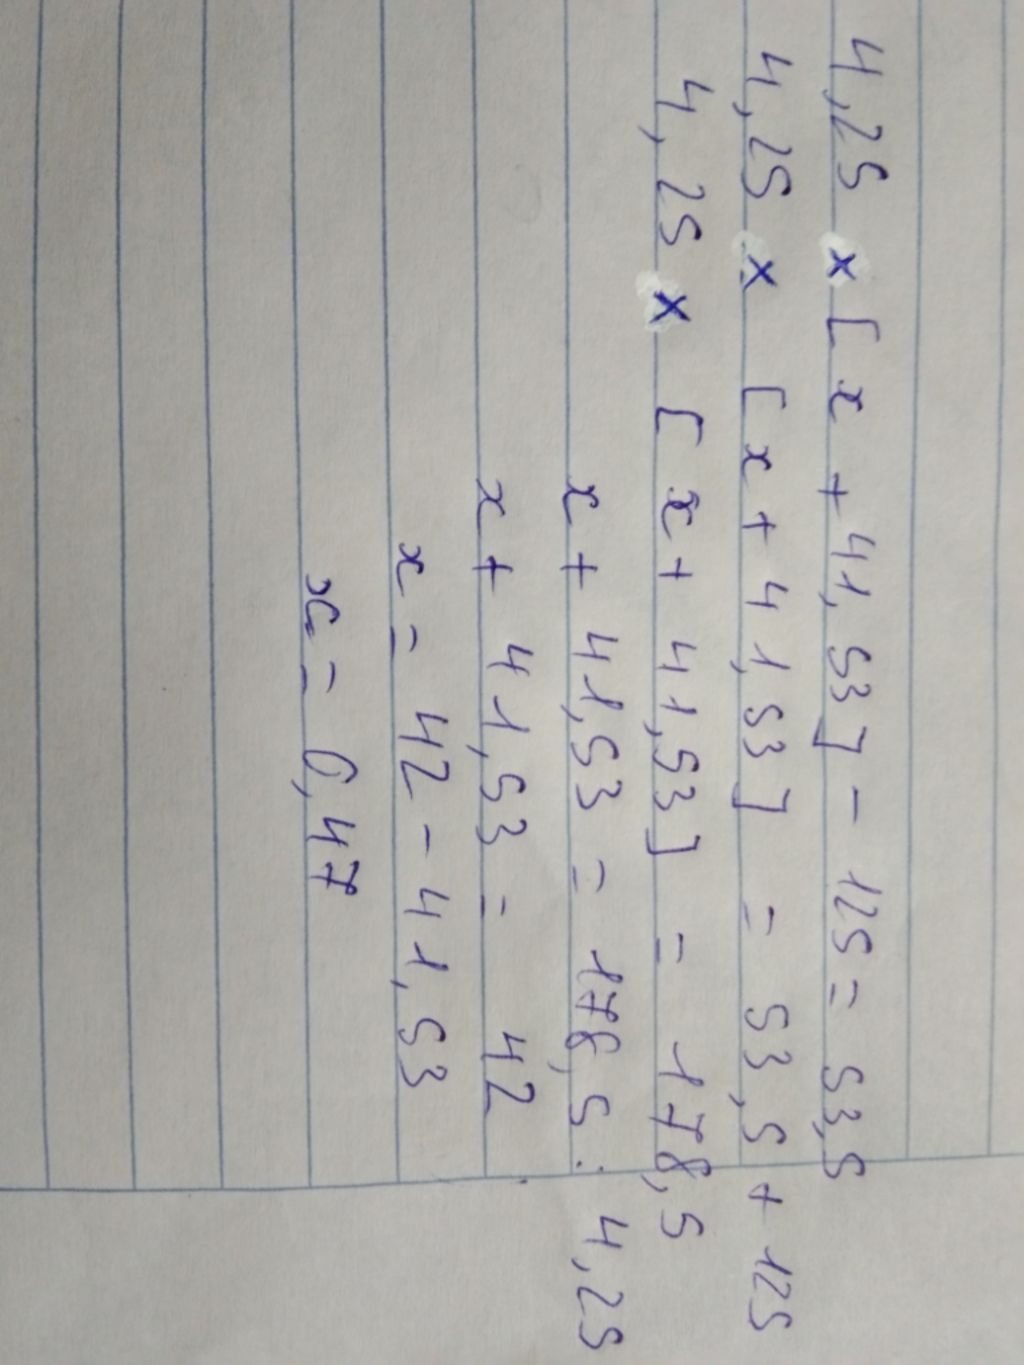 4,25 x [ x + 41,53 ] - 125 = 53,5
4,25 x [ x + 41,53 ] = 53,5 + 125
4,25 x [ x + 41,53 ] = 178,5
x + 41,53 = 178,5 : 4,25
x + 41,53 = 42
x = 42 - 41,53
x = 0,47